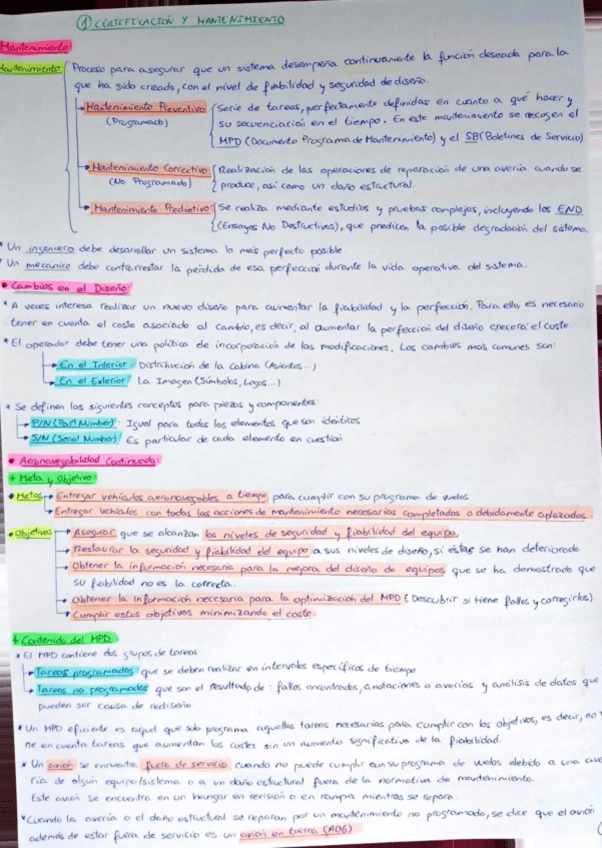 ① CERTIFICACIÓN Y MANTENIMIENTO
Mantenimiento
Mantenimiento Proceso para asegurar que un sistema desempeña continuamente la función deseada para la
que ha sido creado, con el nivel de fiabilidad y seguridad de diseño.
Mantenimiento Preventivo Serie de tareas, perfectamente definidas en cuanto a qué hacer y
(Programado) su secuenciación en el tiempo. En este mantenimiento se recogen el
MPD (Documento Programa de Mantenimiento) y el SB (Boletines de Servicio)
Mantenimiento Correctivo Realización de las operaciones de reparación de una avería cuando se
(No Programado) produce, así como un daño estructural.
Mantenimiento Predictivo: Se realiza mediante estudios y pruebas complejas, incluyendo los END
(Ensayos No Destructivos), que predicen la posible degradación del sistema.
* Un ingeniero debe desarrollar un sistema lo más perfecto posible.
* Un mecánico debe contrarrestar la pérdida de esa perfección durante la vida operativa del sistema.
• Cambios en el Diseño:
* A veces interesa realizar un nuevo diseño para aumentar la fiabilidad y la perfección. Para ello, es necesario
tener en cuenta el coste asociado al cambio, es decir, al aumentar la perfección del diseño crecerá el coste
* El operador debe tener una política de incorporación de las modificaciones. Los cambios más comunes son:
En el Interior: Distribución de la Cabina (Asientos...)
En el Exterior: La Imagen (Símbolos, Logos...)
* Se definen los siguientes conceptos para piezas y componentes:
P/N (Part Number): Igual para todos los elementos que son idénticos
S/N (Serial Number): Es particular de cada elemento en cuestión.
• Aeronavegabilidad Continuada:
+ Meta y Objetivo:
• Metas Entregar vehículos aeronavegables a tiempo para cumplir con su programa de vuelos
Entregar vehículos con todas las acciones de mantenimiento necesarias completadas o debidamente aplazadas
• Objetivos Asegurar que se alcanzan los niveles de seguridad y fiabilidad del equipo.
Restaurar la seguridad y fiabilidad del equipo a sus niveles de diseño, si éstas se han deteriorado.
Obtener la información necesaria para la mejora del diseño de equipos que se ha demostrado que
su fiabilidad no es la correcta.
Obtener la información necesaria para la optimización del MPD (Descubrir si tiene fallos y corregirlos).
Cumplir estos objetivos minimizando el coste.
+ Contenido del MPD
* El MPD contiene dos grupos de tareas
Tareas programadas que se deben realizar en intervalos específicos de tiempo
Tareas no programadas que son el resultado de: fallos encontrados, anotaciones o averías y análisis de datos que
pueden ser causa de rediseño
* Un MPD eficiente es aquel que solo programa aquellas tareas necesarias para cumplir con los objetivos, es decir, no
ne en cuenta tareas que aumentan los costes sin un aumento significativo de la fiabilidad.
* Un avión se encuentra fuera de servicio cuando no puede cumplir con su programa de vuelos debido a una ave
ría de algún equipo/sistema o a un daño estructural fuera de la normativa de mantenimiento.
Este avión se encuentra en un hangar en revisión o en rampa mientras se repara.
* Cuando la avería o el daño estructural se reparan por un mantenimiento no programado, se dice que el avión
además de estar fuera de servicio es un avión en tierra (AOG)